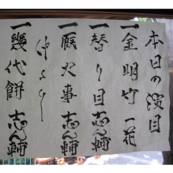 本日の演目
一 金明竹 一花
一 替り目 志ん輔
仲トリ
一 厩火事 志ん輔
一 幾代餅 志ん輔